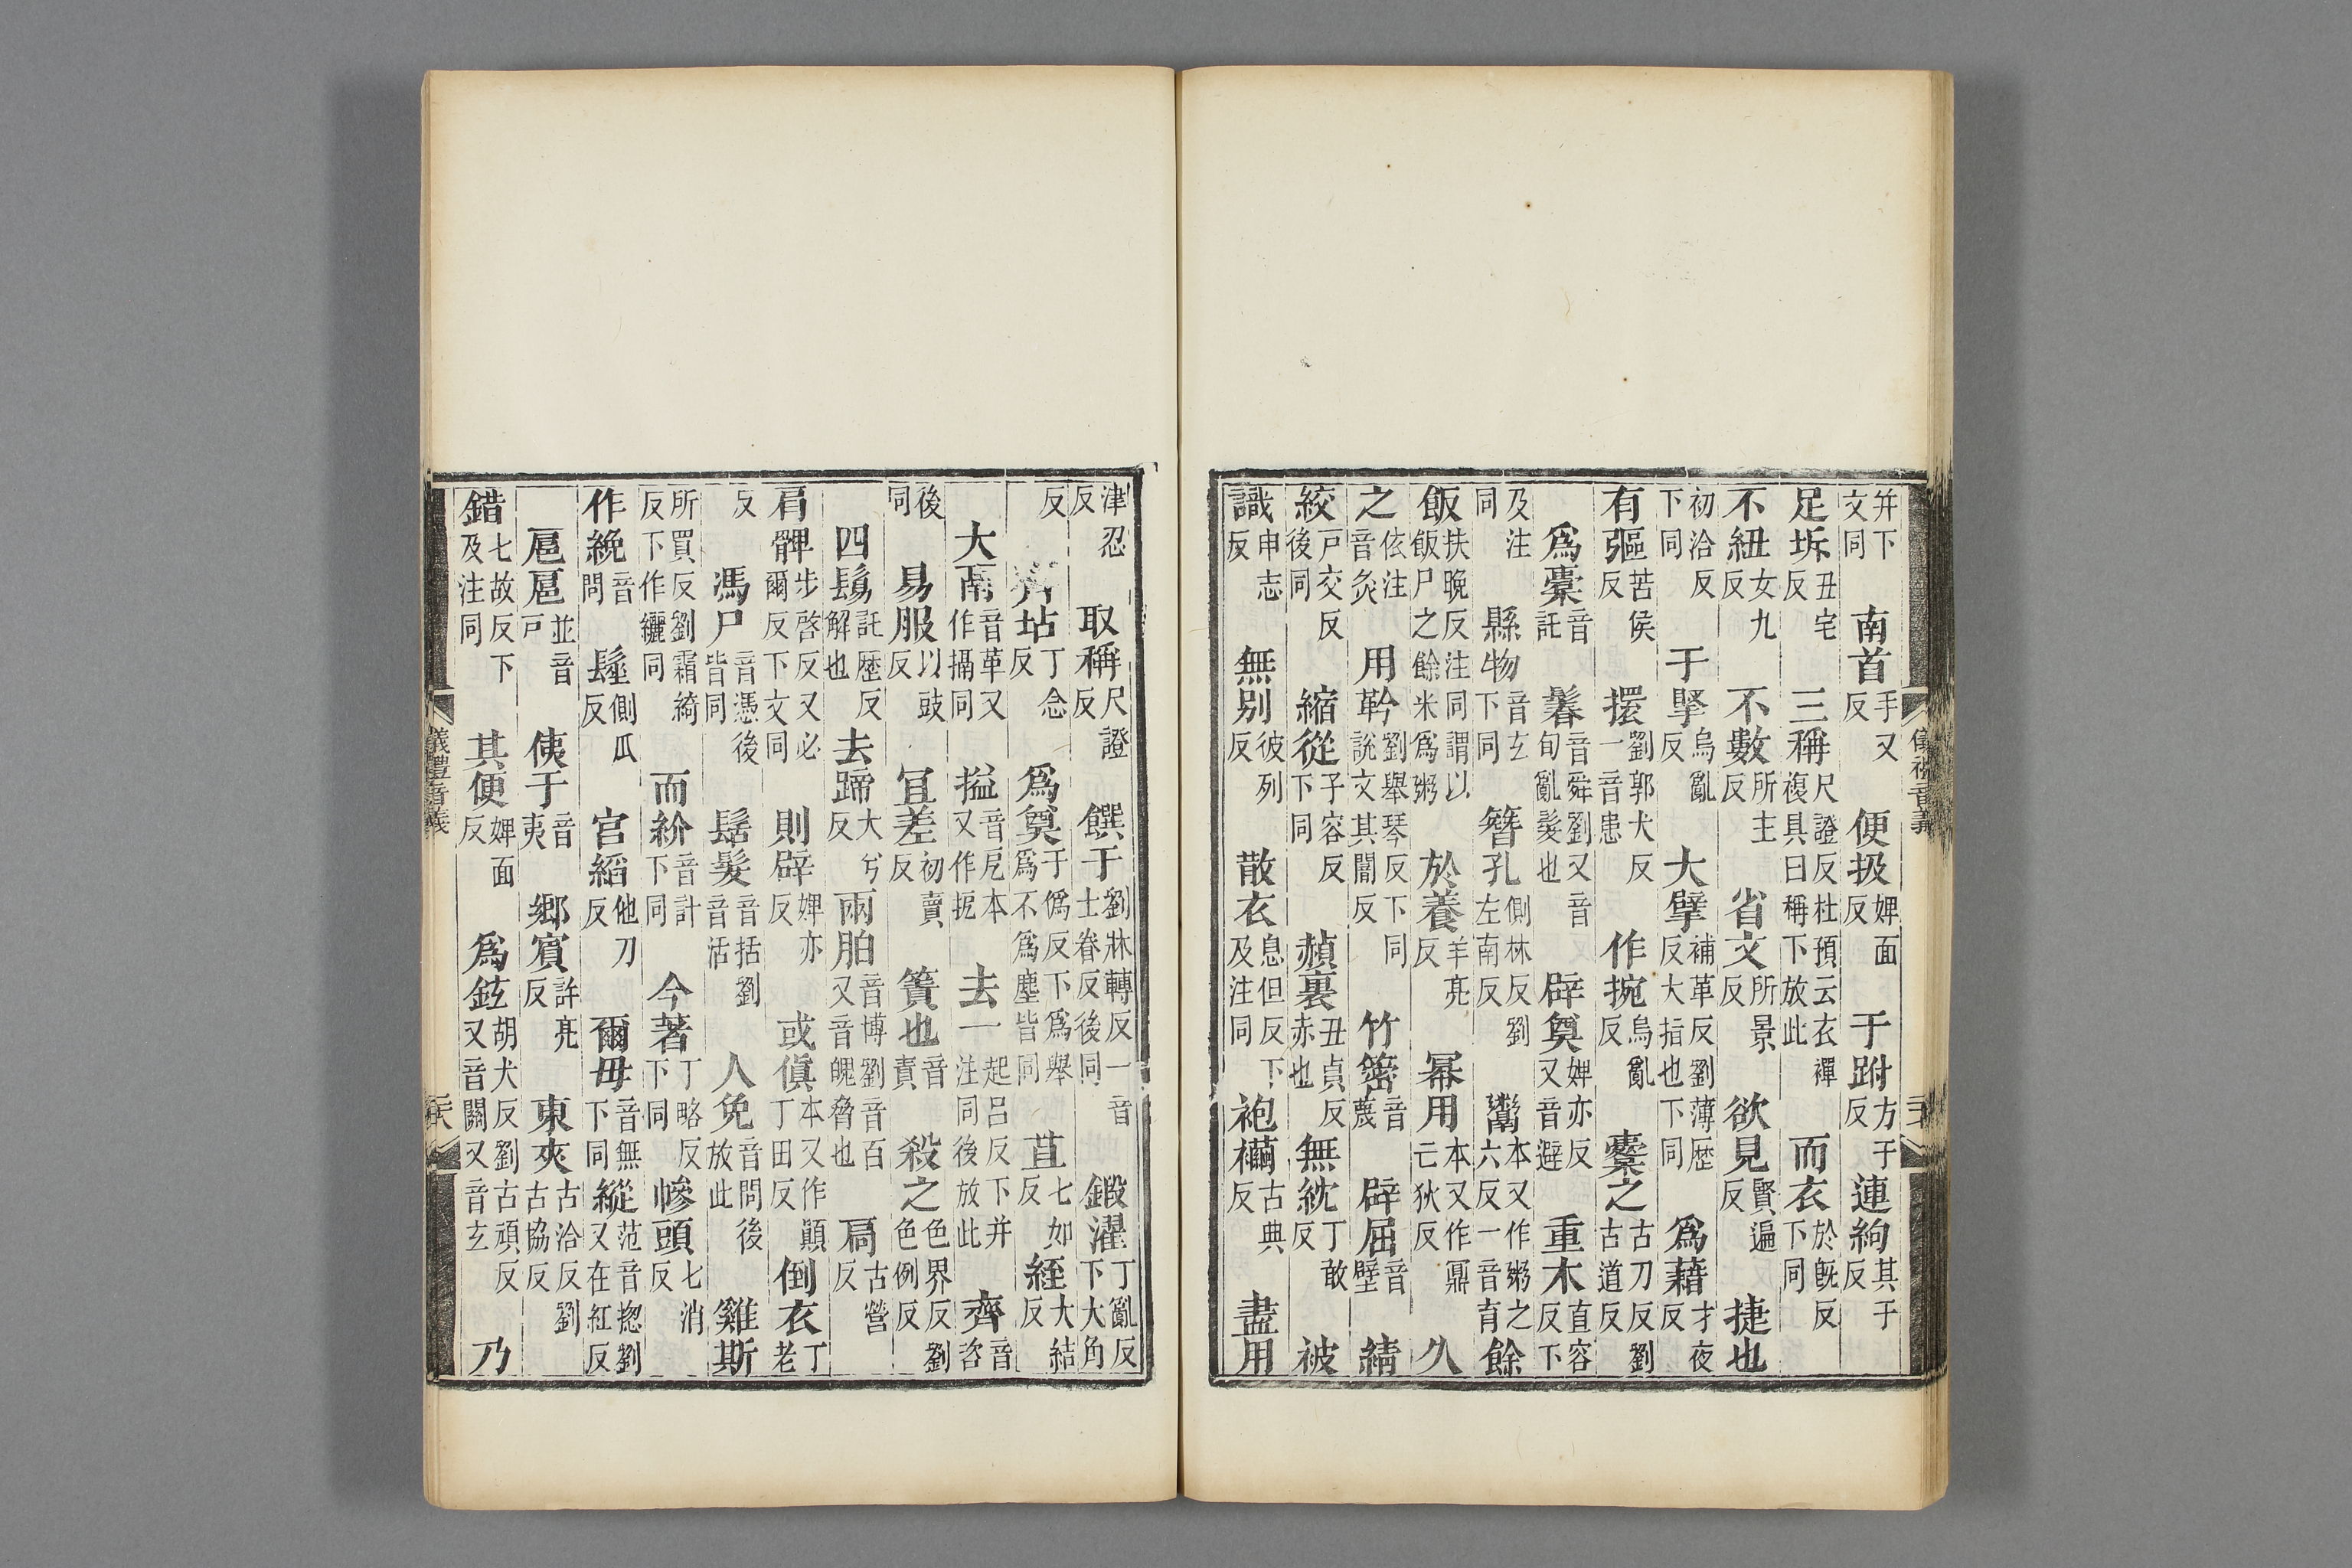 并下文同 南首手又反 便扱婢面反 于跗方于反 連絇其于反
足坼丑宅反 三稱尺證反杜預云衣襌複具曰稱下放此 而衣於旣反下同
不紐女九反 不數所主反 省文所景反 欲見賢遍反 捷也
初洽反下同 于掔烏亂反 大擘補革反劉薄歷反大指也下同 爲藉才夜反
有彄苦侯反 擐劉郭犬反一音患 作捥烏亂反 櫜之古刀反劉古道反
爲橐音託 鬊音舜劉又音旬亂髮也 辟奠婢亦反又音避 重木直容反下
及注同 縣物音玄下同 簪孔側林反劉左南反 鬻本又作粥之六反一音育 餘
飯扶晚反注同謂以飯尸之餘米爲粥 於養羊亮反 冪用本又作鼏亡狄反 久
之依注音灸 用靲劉舉琴反下同說文其闇反 竹䈼音蔑 辟屈音壁 綪
絞戶交反後同 縮從子容反下同 赬裏丑貞反赤也 無紞丁敢反 被
識申志反 無別彼列反 散衣息但反下及注同 袍襺古典反 盡用
津忍反 取稱尺證反 饌于劉牀轉反一音士眷反後同 鍛濯丁亂反下大角
反 齊坫丁念反 爲奠于僞反下爲舉爲不爲塵皆同 苴七如反 絰大結反
大鬲音革又作搹同 搤音戹本又作扼 去一起呂反下并注同後放此 齊音咨
後同 易服以豉反 宜差初賣反 簀也音責 殺之色界反劉色例反
四鬄託歷反解也 去蹄大兮反 兩胉音博劉音百又音魄脅也 扃古營反
肩髀步啓反又必爾反下文同 則辟婢亦反 或傎本又作顛丁田反 倒衣丁老
反 馮尸音憑後皆同 髺髮音括劉音活 人免音問後放此 雞斯
所買反劉霜綺反下作纚同 而紒音計下同 今著丁略反下同 幓頭七消反
作絻音問 髽側瓜反 宮縚他刀反 爾毋音無下同 縱從范音揔劉又在紅反
扈扈並音戶 侇于音夷 鄉賓許亮反 東夾古洽反劉古協反
錯七故反下及注同 其便婢面反 爲鉉胡犬反劉古頑反又音關又音玄 乃
儀禮音義
儀禮音義